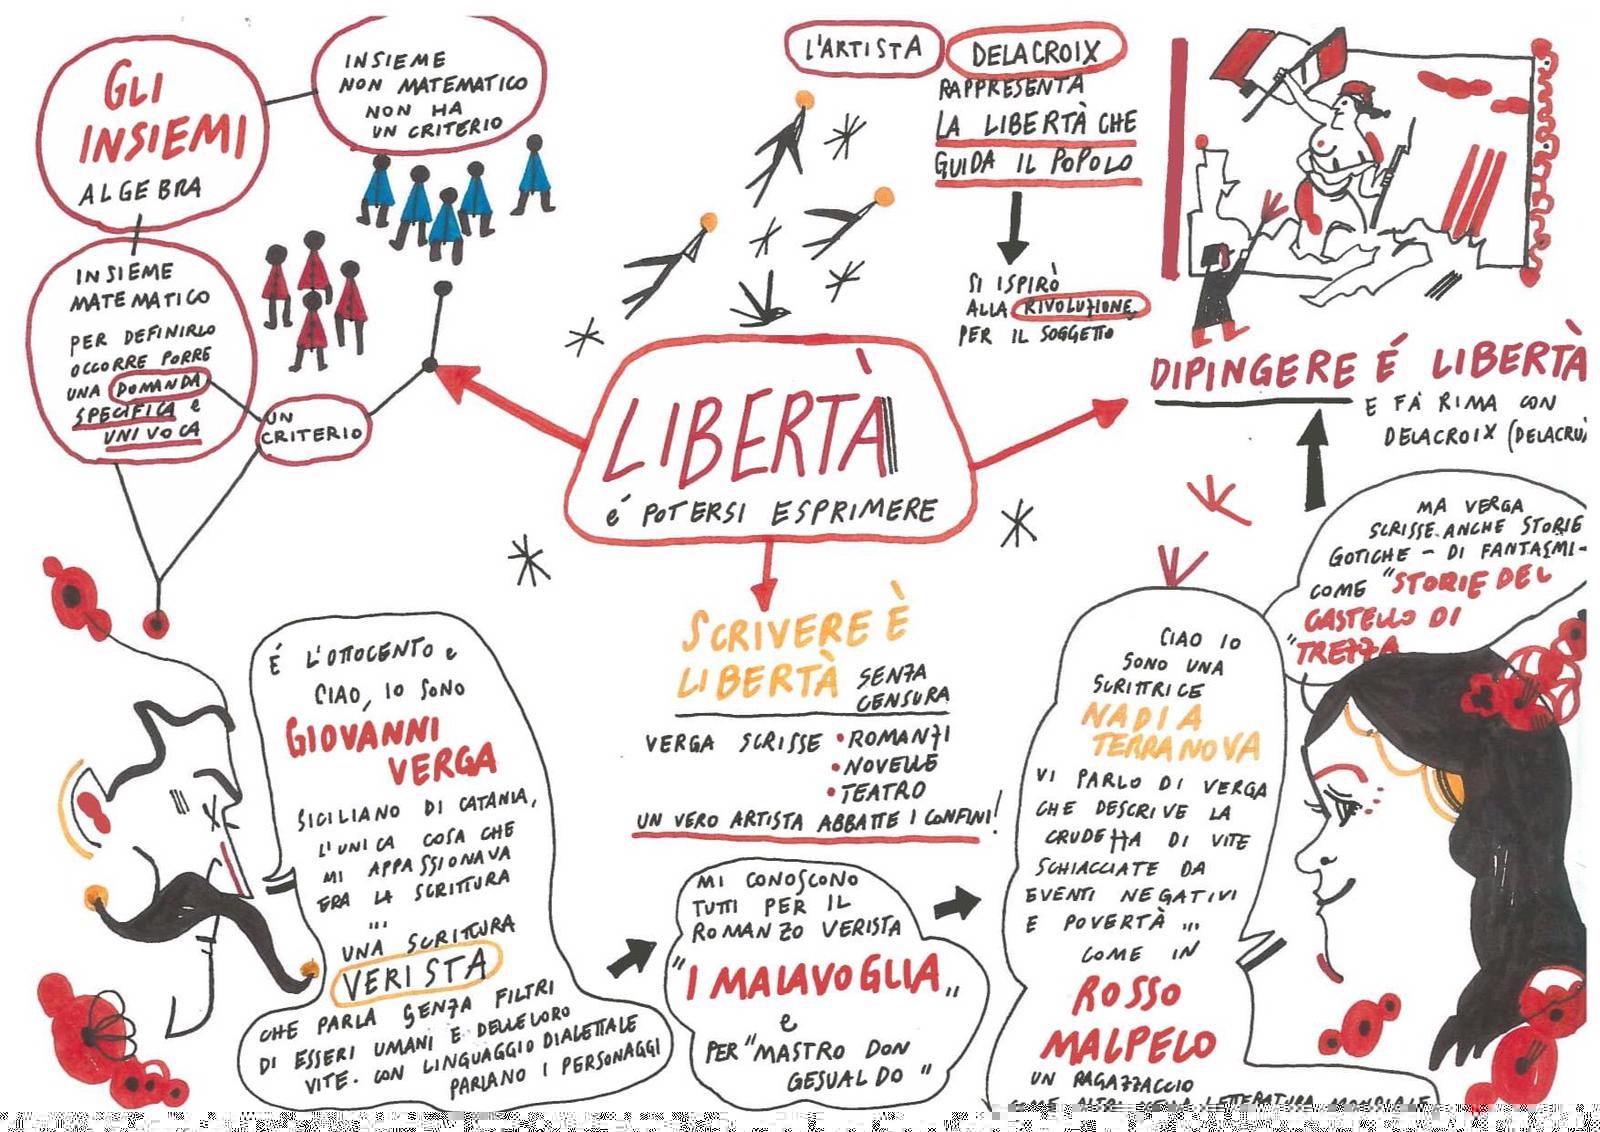 GLI
INSIEMI
ALGEBRA
INSIEME
NON MATEMATICO
NON HA
UN CRITERIO
INSIEME
MATEMATICO
PER DEFINIRLO
OCCORRE PORRE
UNA DOMANDA
SPECIFICA e
UNIVOCA
UN
CRITERIO
L'ARTISTA DELACROIX
RAPPRESENTA
LA LIBERTÀ CHE
GUIDA IL POPOLO
SI ISPIRÒ
ALLA RIVOLUZIONE
PER IL SOGGETTO
DIPINGERE É LIBERTÀ
E FÀ RIMA CON
DELACROIX (DELACRU
LIBERTÀ
é POTERSI ESPRIMERE
SCRIVERE È
LIBERTÀ SENZA
CENSURA
VERGA SCRISSE • ROMANZI
• NOVELLE
• TEATRO
UN VERO ARTISTA ABBATTE I CONFINI!
É L'OTTOCENTO e
CIAO, IO SONO
GIOVANNI
VERGA
SICILIANO DI CATANIA,
L'UNICA COSA CHE
MI APPASSIONAVA
ERA LA SCRITTURA
...
UNA SCRITTURA
VERISTA
CHE PARLA SENZA FILTRI
DI ESSERI UMANI E DELLE LORO
VITE. CON LINGUAGGIO DIALETTALE
PARLANO I PERSONAGGI
MI CONOSCONO
TUTTI PER IL
ROMANZO VERISTA
"I MALAVOGLIA"
e
PER "MASTRO DON
GESUALDO"
CIAO IO
SONO UNA
SCRITTRICE
NADIA
TERRANOVA
VI PARLO DI VERGA
CHE DESCRIVE LA
CRUDEZZA DI VITE
SCHIACCIATE DA
EVENTI NEGATIVI
E POVERTÀ ...
COME IN
ROSSO
MALPELO
UN RAGAZZACCIO
COME ALTRI NELLA LETTERATURA MONDIALE
MA VERGA
SCRISSE ANCHE STORIE
GOTICHE - DI FANTASMI -
COME "STORIE DEL
CASTELLO DI
"TREZZA